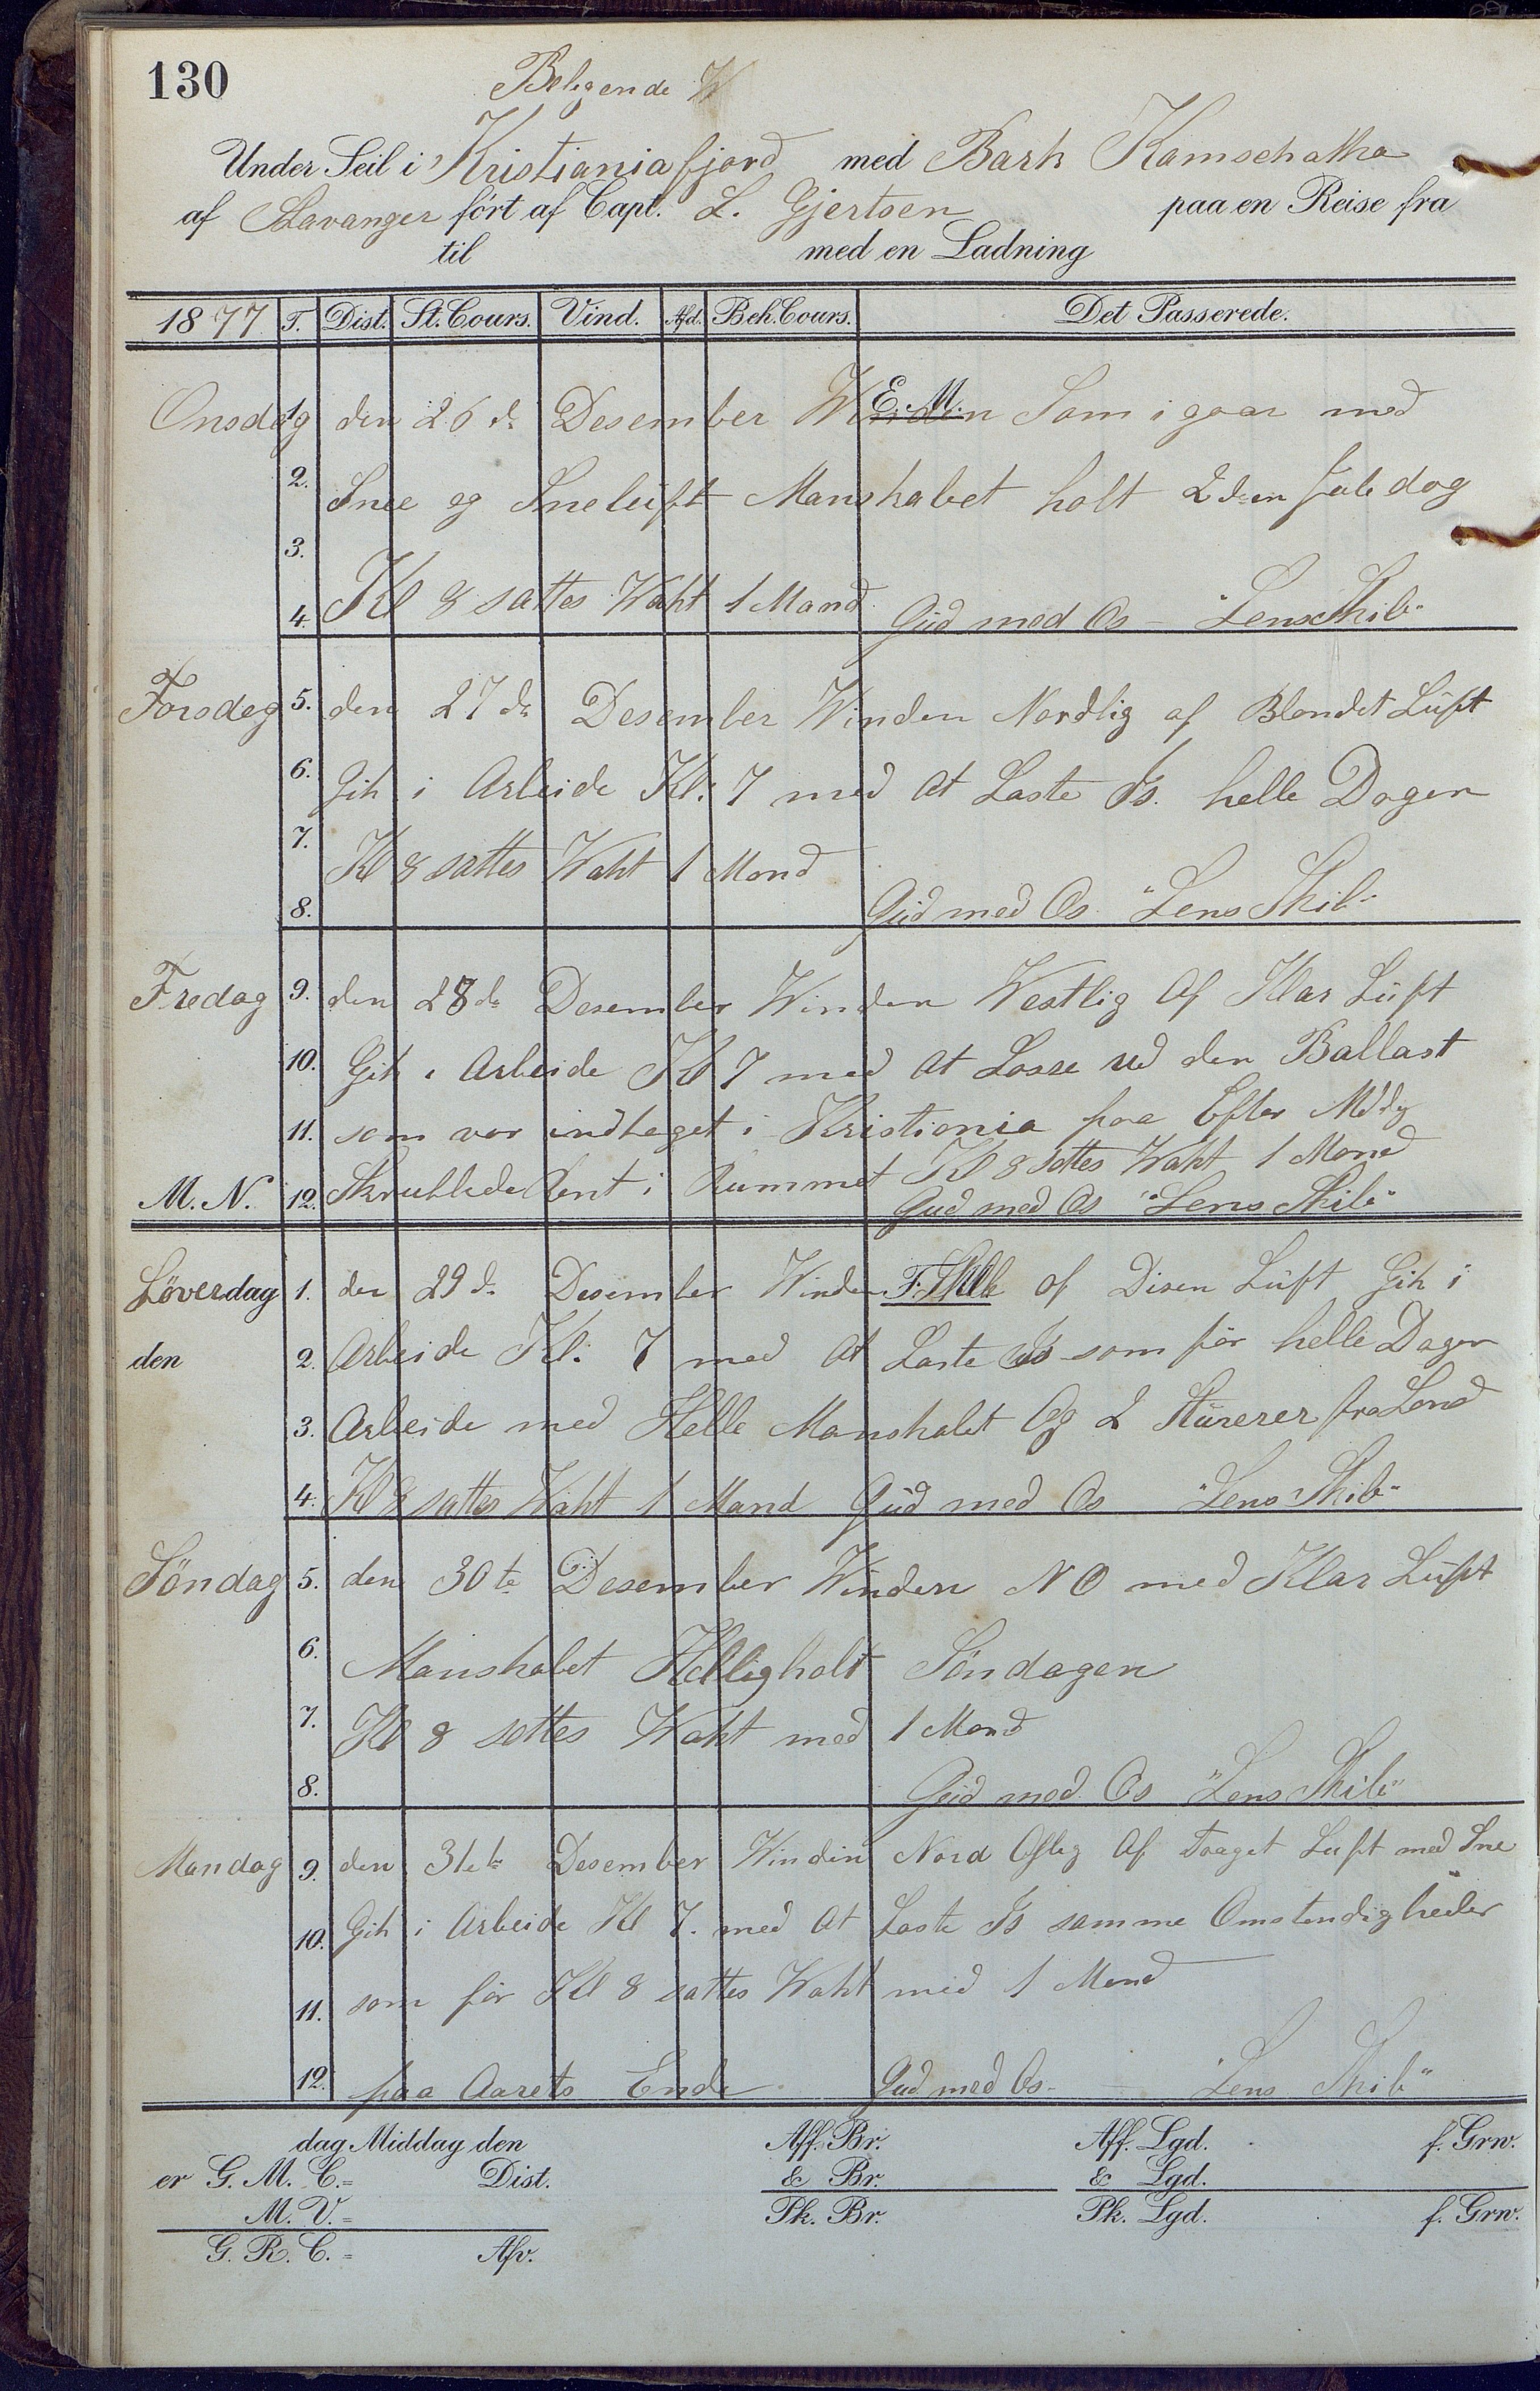 130
Belegende W
Under Seil i Kristianiafjord med Bark Kamschatka
af Stavanger ført af Capt. L. Gjertsen paa en Reise fra
til med en Ladning
1877 T. Dist. St. Cours. Vind. Afd. Beh. Cours. Det Passerede.
E. M.
Onsdag 1. den 26 de Desember Winden Som i gaar med
2. Snee og Sneluft Manskabet holt 2den Jule dag
3.
4. Kl 8 sattes Waht 1 Mand Gud med Os - "Lens Skib"
Torsdag 5. den 27 de Desember Winden Nordlig af Blandet Luft
6. Gik i Arbeide Kl. 7 med at Laste Is. helle Dagen
7. Kl 8 sattes Waht 1 Mand
8. Gud med Os "Lens Skib"
Fredag 9. den 28 de Desember Winden Westlig Af Klar Luft
10. Gik i Arbeide Kl 7 med at Losse ud den Ballast
11. som var indtaget i Kristiania paa Efter Midg
M. N. 12. Skrubbede Rent i Rummet Kl 8 sattes Waht 1 Mand
Gud med Os "Lens Skib"
Löverdag 1. den 29 de Desember Winden Stille af Disen Luft Gik i
F. M.
den 2. Arbeide Kl: 7 med At Laste Is som för helle Dagen
3. Arbeide med Helle Manskabet Og 2 Stuerer fra Land
4. Kl 8 sattes Waht 1 Mand Gud med Os "Lens Skib"
Söndag 5. den 30 te Desember Winden N O med Klar Luft
6. Manskabet Helligholt Söndagen
7. Kl 8 sattes Waht med 1 Mand
8. Gud med Os "Lens Skib"
Mandag 9. den 31te Desember Winden Nord Af Taaget Luft med Sne
10. Gik i Arbeide Kl 7. med at Laste Is samme Omstendigheder
11. som för Kl 8 sattes Waht med 1 Mand
12. paa Aarets Ende Gud med Os - "Lens Skib"
dag Middag den Aff. Br. Aff. Lgd. f. Grw.
er G. M. C.= Dist. & Br. & Lgd.
M. V.= Pk. Br. Pk. Lgd. f. Grw.
G. R. C.= Afv.